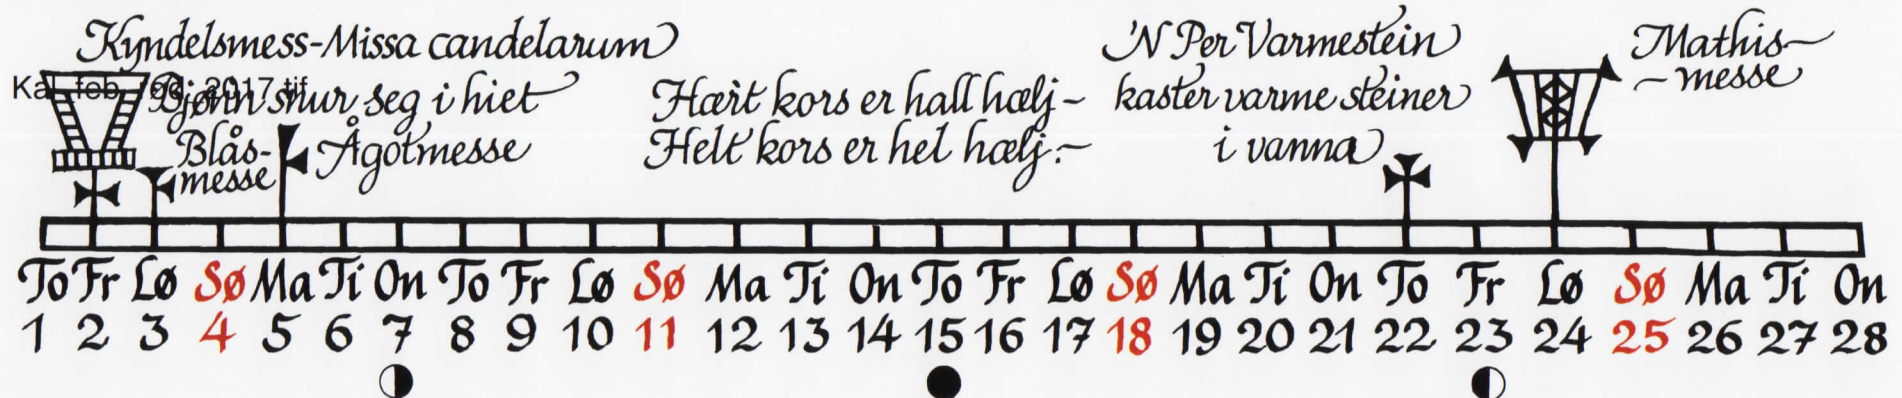 Kyndelsmess-Missa candelarum
Bjønn snur seg i hiet
Blås-
messe
Ågotmesse
Hært kors er hall hælj~
Helt kors er hel hælj.~
'N Per Varmestein
kaster varme steiner
i vanna
Mathis~
~messe
To Fr Lø Sø Ma Ti On To Fr Lø Sø Ma Ti On To Fr Lø Sø Ma Ti On To Fr Lø Sø Ma Ti On
1 2 3 4 5 6 7 8 9 10 11 12 13 14 15 16 17 18 19 20 21 22 23 24 25 26 27 28